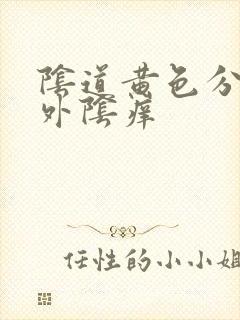 陰道黄色分
外陰痒
任性的小小姐